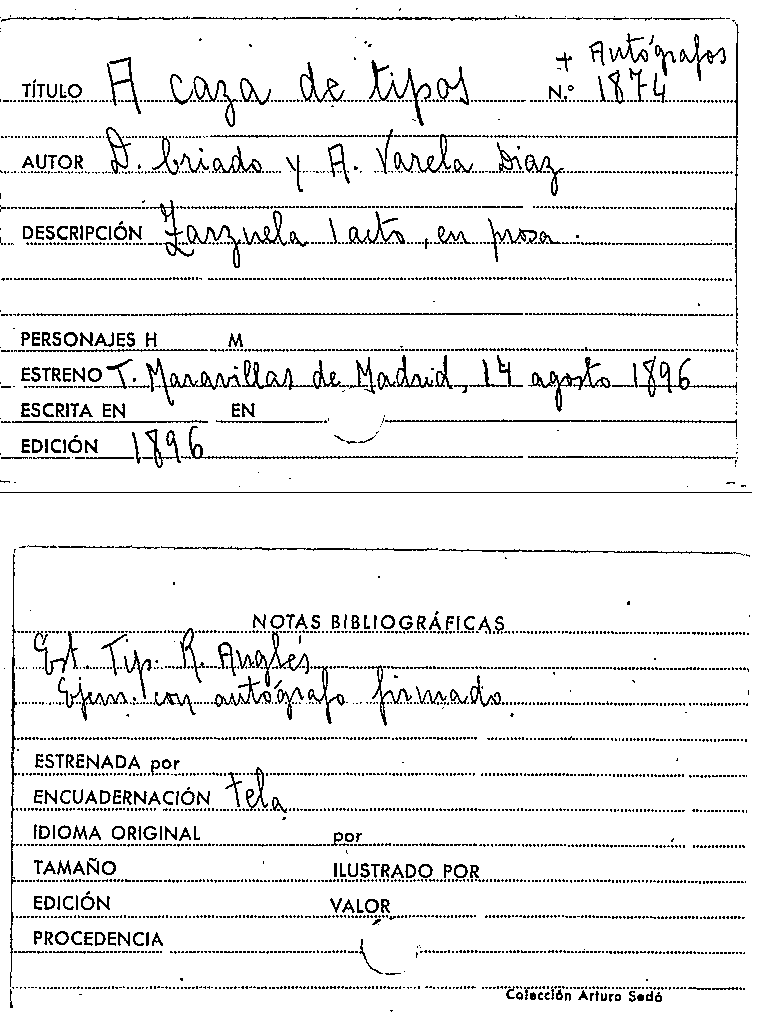 + Autógrafos
TÍTULO A caza de tipos N.º 1874
AUTOR D. Criado y A. Varela Diaz
DESCRIPCIÓN Zarzuela 1 acto, en prosa.
PERSONAJES H M
ESTRENO T. Maravillas de Madrid, 14 agosto 1896
ESCRITA EN EN
EDICIÓN 1896
NOTAS BIBLIOGRÁFICAS
Est. Tip. R. Anglés
Ejem. con autógrafo firmado
ESTRENADA por
ENCUADERNACIÓN tela
IDIOMA ORIGINAL por
TAMAÑO ILUSTRADO POR
EDICIÓN VALOR
PROCEDENCIA
Colección Arturo Sedó